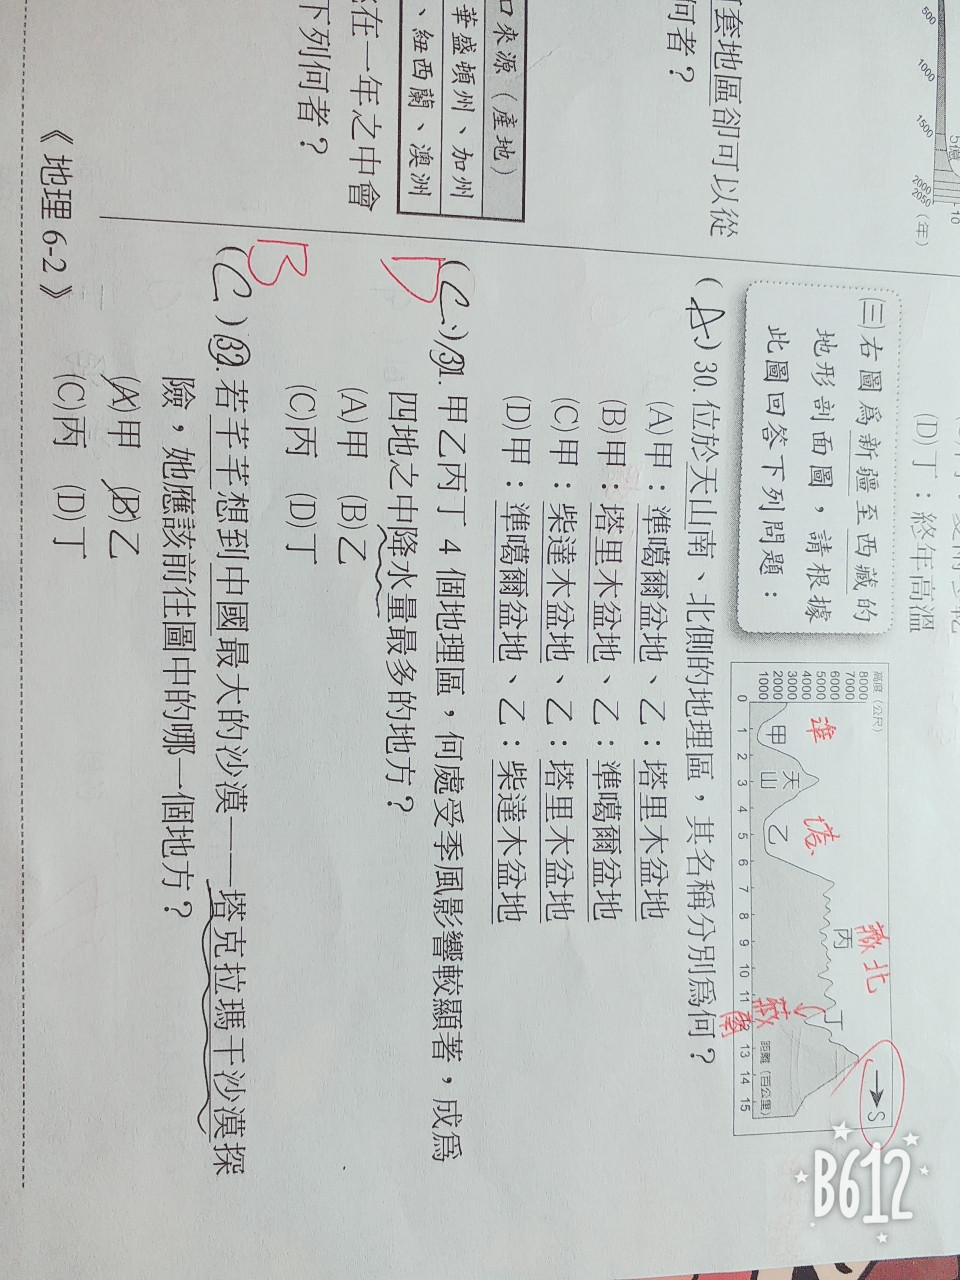 500 1000 1500 2000 2050 (年)
5億
10
套地區卻可以從
何者？
口來源（產地）
華盛頓州、加州
、紐西蘭、澳洲
在一年之中會
下列何者？
《地理 6-2》
(D)丁：終年高溫
(三)右圖為新疆至西藏的
地形剖面圖，請根據
此圖回答下列問題：
高度（公尺）
8000
7000
6000
5000
4000
3000
2000
1000
0 1 2 3 4 5 6 7 8 9 10 11 12 13 14 15
距離（百公里）
甲 天山 乙 丙 丁
→S
準
塔
藏北
藏南
(A)30. 位於天山南、北側的地理區，其名稱分別為何？
(A)甲：準噶爾盆地、乙：塔里木盆地
(B)甲：塔里木盆地、乙：準噶爾盆地
(C)甲：柴達木盆地、乙：塔里木盆地
(D)甲：準噶爾盆地、乙：柴達木盆地
D
(C)31. 甲乙丙丁 4 個地理區，何處受季風影響較顯著，成為
四地之中降水量最多的地方？
(A)甲 (B)乙
(C)丙 (D)丁
B
(C)32. 若芊芊想到中國最大的沙漠——塔克拉瑪干沙漠探
險，她應該前往圖中的哪一個地方？
(A)甲 (B)乙
(C)丙 (D)丁
B612